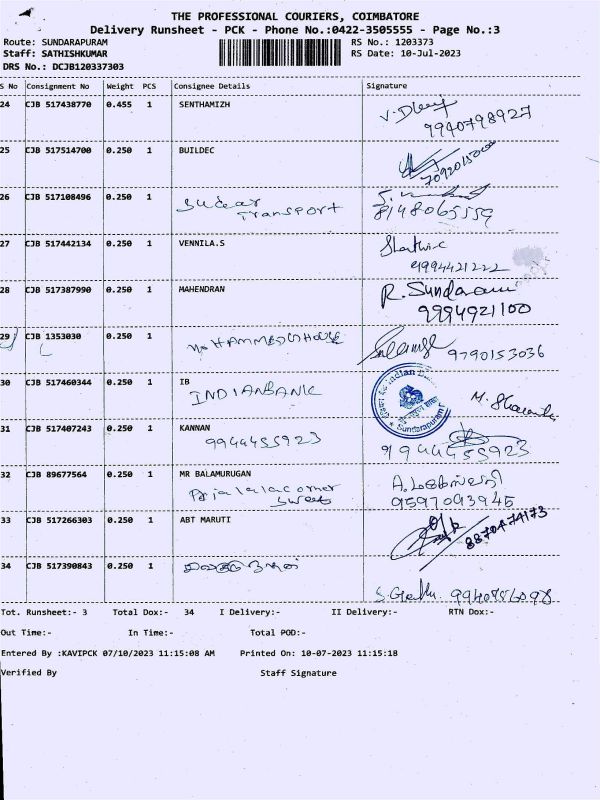 THE PROFESSIONAL COURIERS, COIMBATORE
Delivery Runsheet - PCK - Phone No.:0422-3505555 - Page No.:3
Route: SUNDARAPURAM
RS No.: 1203373
Staff: SATHISHKUMAR
RS Date: 10-Jul-2023
DRS No.: DCJB120337303
S No Consignment No Weight PCS Consignee Details Signature
24 CJB 517438770 0.455 1 SENTHAMIZH
9940798927
25 CJB 517514700 0.250 1 BUILDEC
26 CJB 517108496 0.250 1 Transport
8148065559
27 CJB 517442134 0.250 1 VENNILA.S
9994421222
28 CJB 517387990 0.250 1 MAHENDRAN R. Sundarami
9994921100
29 CJB 1353030 0.250 1
9790153036
30 CJB 517460344 0.250 1 IB
INDIANBANK
Sundarapuram
31 CJB 517407243 0.250 1 KANNAN
9944455923
9944455923
32 CJB 89677564 0.250 1 MR BALAMURUGAN
corner
Sweets
9597093945
33 CJB 517266303 0.250 1 ABT MARUTI
8870474173
34 CJB 517390843 0.250 1
Tot. Runsheet:- 3 Total Dox:- 34 I Delivery:- II Delivery:- RTN Dox:-
Out Time:- In Time:- Total POD:-
Entered By :KAVIPCK 07/10/2023 11:15:08 AM Printed On: 10-07-2023 11:15:18
Verified By Staff Signature